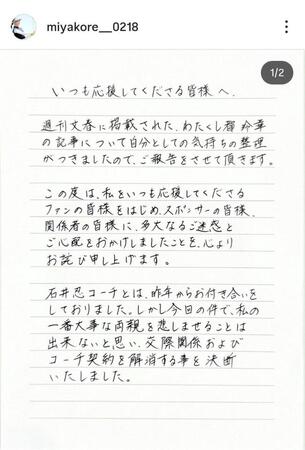 miyakore__0218
1/2
いつも応援してくださる皆様へ.
週刊文春に掲載された、わたくし都 玲華
の記事について自分としての気持ちの整理
がつきましたので、ご報告をさせて頂きます。
この度は、私をいつも応援してくださる
ファンの皆様をはじめ、スポンサーの皆様、
関係者の皆様に、多大なるご迷惑と
ご心配をおかけしましたことを、心より
お詫び申し上げます。
石井忍コーチとは、昨年からお付き合いを
しておりました。しかし今日の件で、私の
一番大事な両親を悲しませることは
出来ないと思い、交際関係および
コーチ契約を解消する事を決断
いたしました。